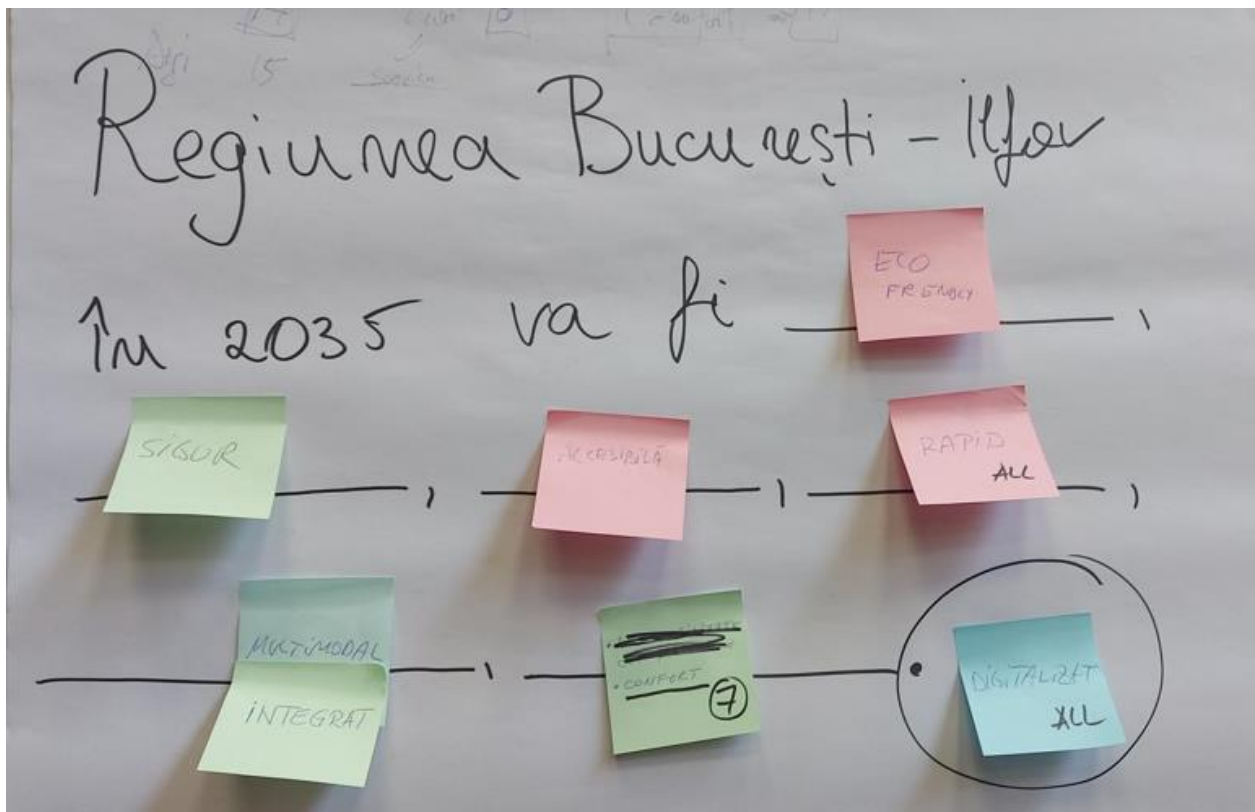 15
Regiunea București - Ilfov
în 2035 va fi
ECO
FRIENDLY
SIGUR
ACCESIBILĂ
RAPID
ALL
MULTIMODAL
INTEGRAT
• CONFORT
7
DIGITALIZAT
ALL